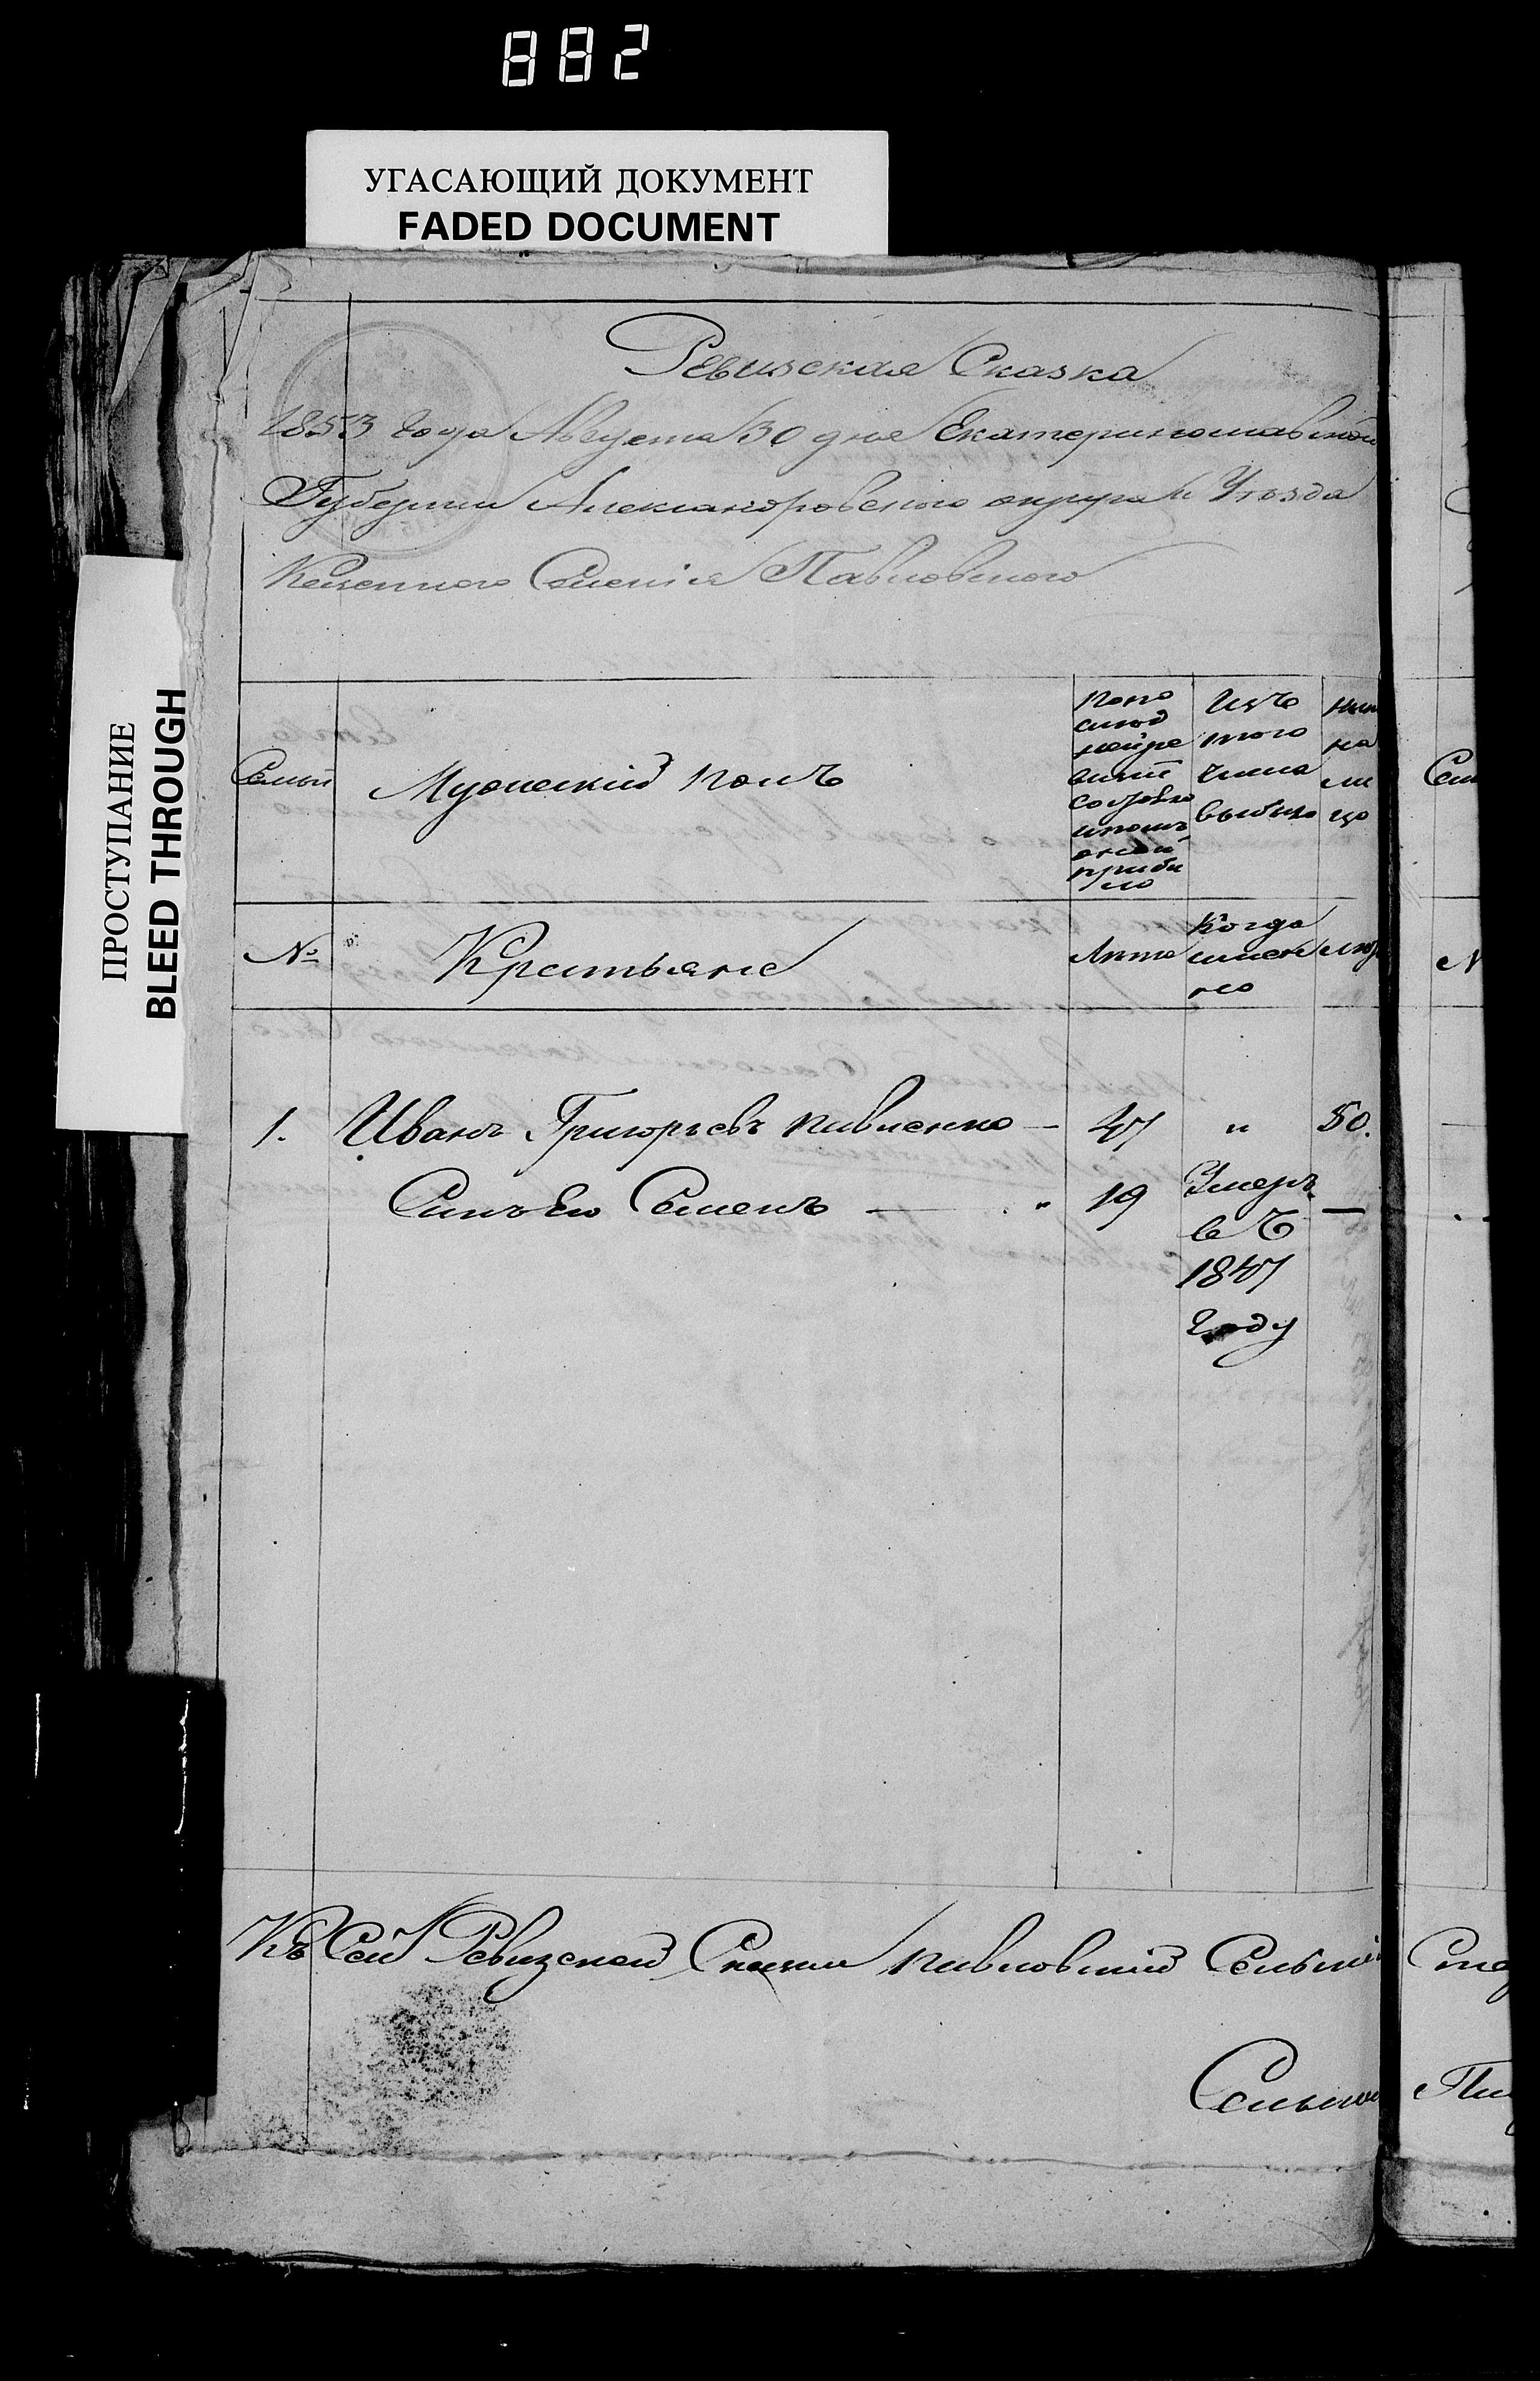 882
УГАСАЮЩИЙ ДОКУМЕНТ
FADED DOCUMENT
ПРОСТУПАНИЕ
BLEED THROUGH
Ревизская Сказка
1853 Года Августа 30 дня Екатеринославской
Губернии Александровского округа и Уѣзда
Казенного Селенія Павловского
Семьи
Мужескій полъ
по по
слѣд
ней ре
визіи
Изъ
того
числа
выбыло
ны
на
ли
цо
№
Крестьяне
Лѣта
Когда
имен
но
Лѣта
1. Иванъ Григорьевъ Павленко — 47 " 50.
Синъ Ево Семенъ — " 19 Умеръ —
въ
1847
Году
Къ Сей Ревизской Сказки Павловский Сельский
Сельской